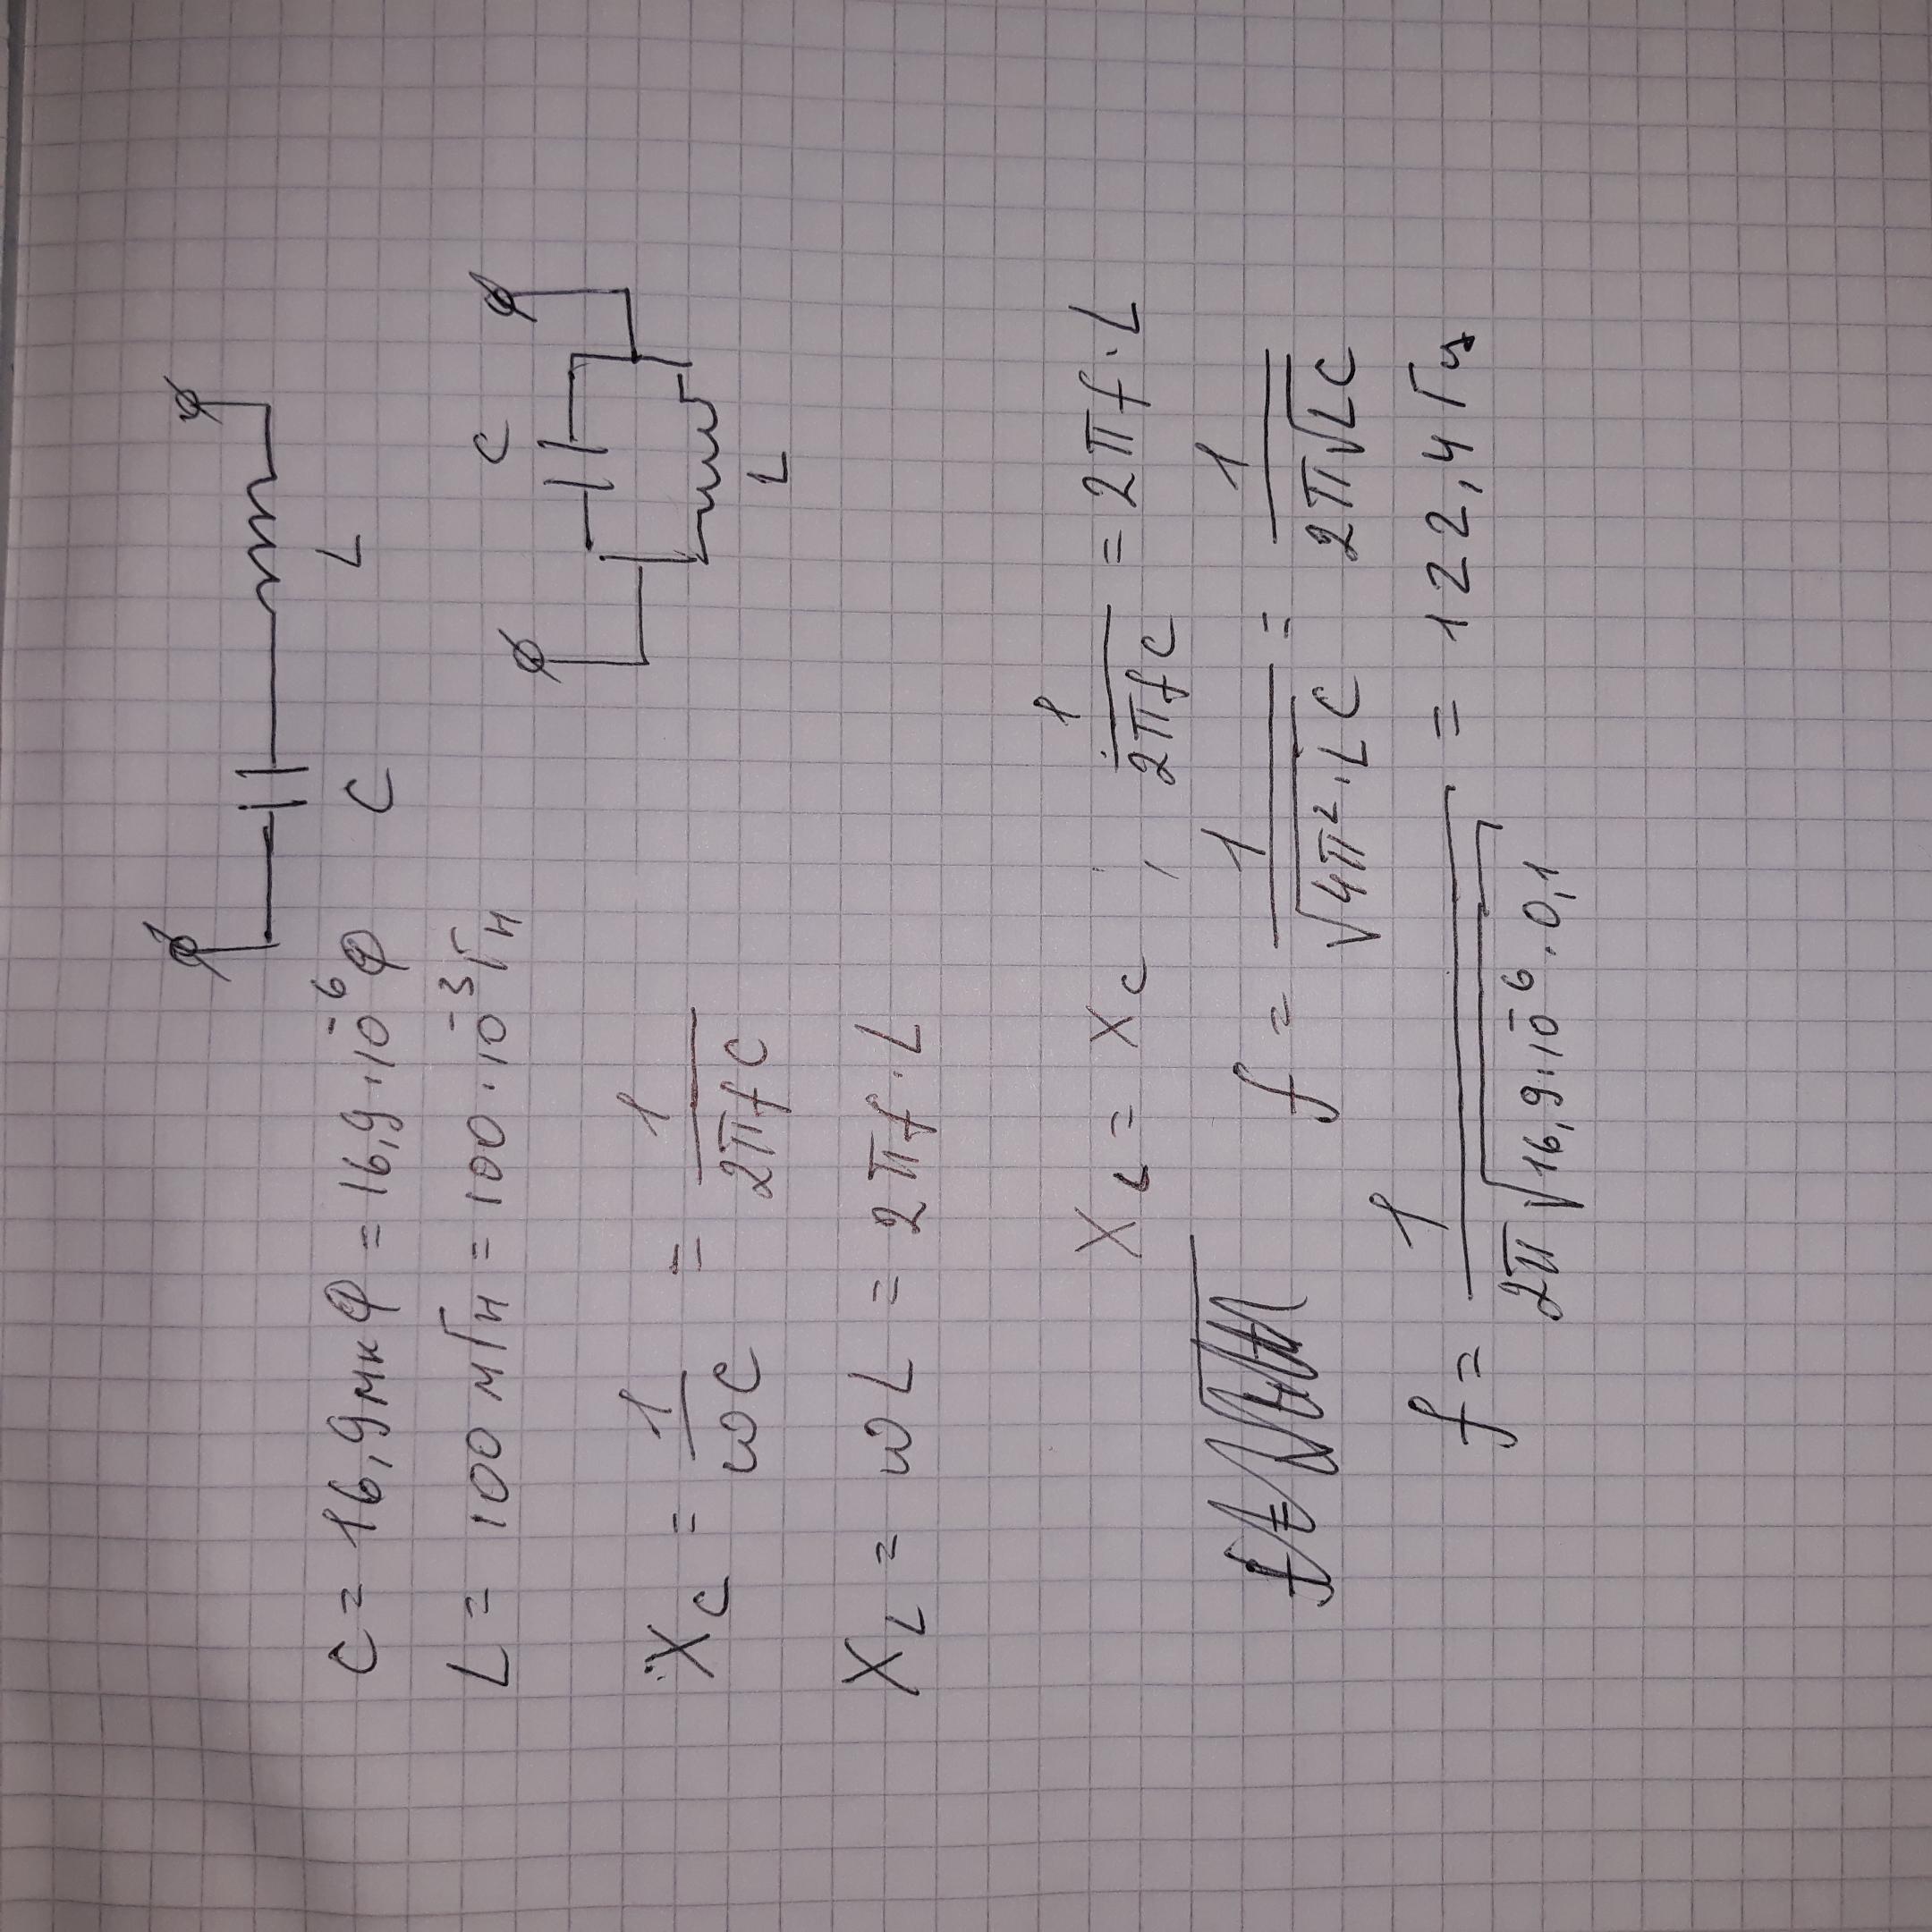 C L
C = 16,9мкФ = 16,9·10⁻⁶Ф
L = 100 мГн = 100·10⁻³Гн
C
L
X_C = 1/ωC = 1/2πfC
X_L = ωL = 2πf·L
X_L = X_C , 1/2πfC = 2πf·L
f = 1/√4π²·LC = 1/2π√LC
f = 1/2π√16,9·10⁻⁶·0,1 = 122,4Гц